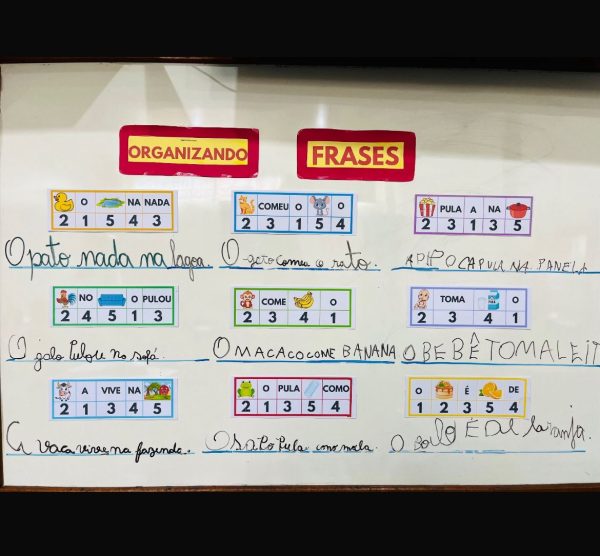 ORGANIZANDO
FRASES
O NA NADA
2 1 5 4 3
O pato nada na lagoa.
COMEU O O
2 3 1 5 4
O gato comeu o rato.
PULA A NA
2 3 1 3 5
PULA NA PANELA
NO O PULOU
2 4 5 1 3
O galo Pulou no sofá.
COME O
2 3 4 1
O MACACO COME BANANA
TOMA O
2 3 4 1
O BEBÊ TOMA LEIT
A VIVE NA
2 1 3 4 5
A vaca vive na fazenda.
O PULA COMO
2 1 3 5 4
O SAPO Pula como mola.
O É DE
1 2 3 5 4
O BOLO É DE laranja.